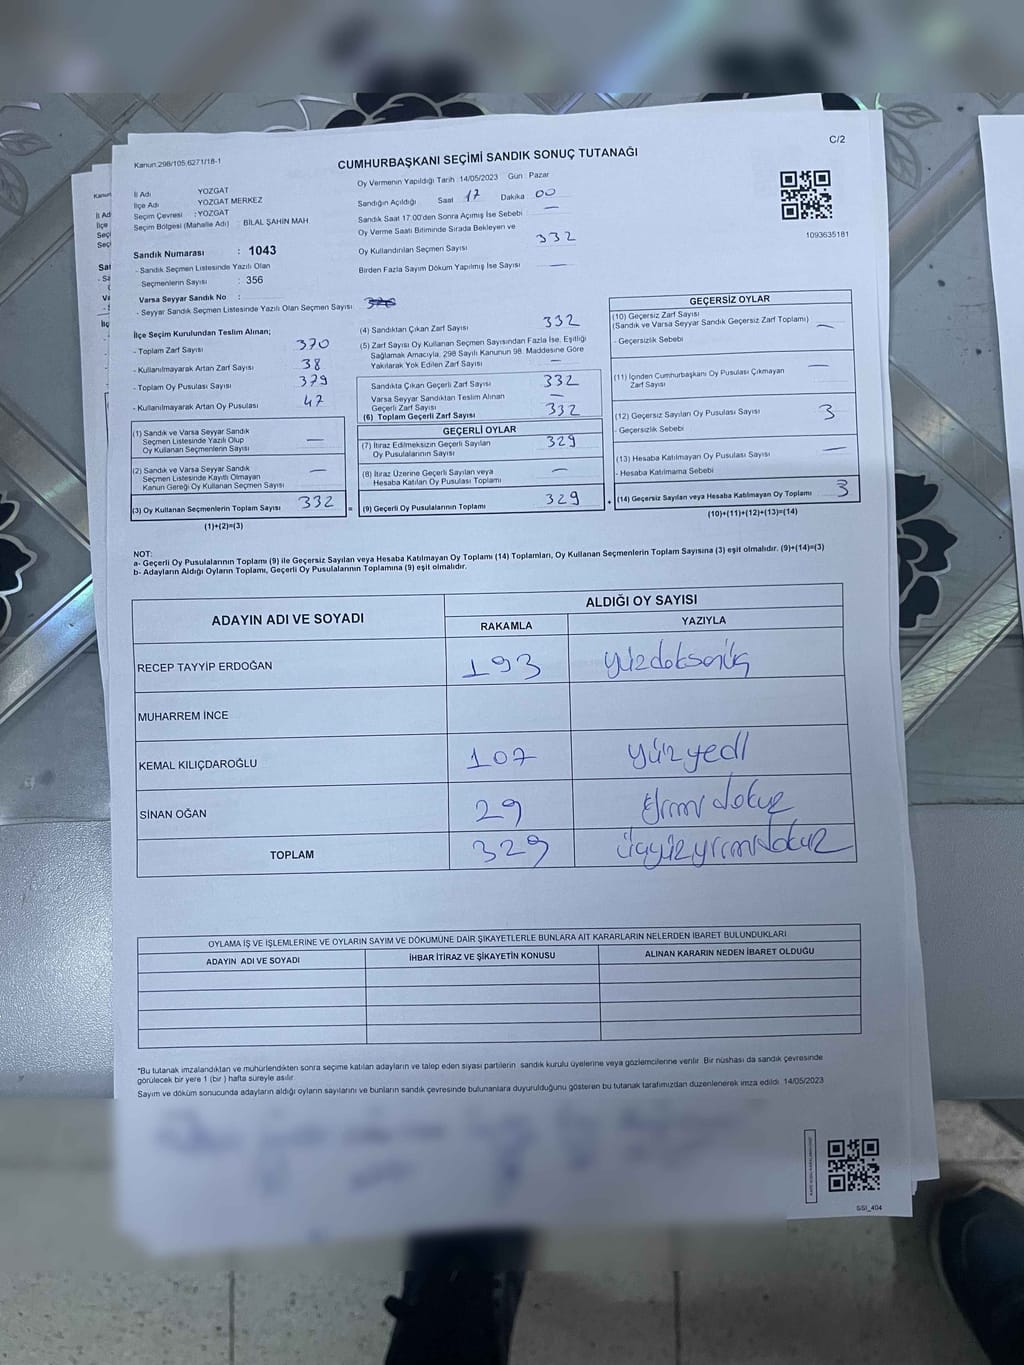 C/2
Kanun:298/105,6271/18-1
CUMHURBAŞKANI SEÇİMİ SANDIK SONUÇ TUTANAĞI
İl Adı YOZGAT
İlçe Adı YOZGAT MERKEZ
Seçim Çevresi : YOZGAT
Seçim Bölgesi (Mahalle Adı) : BİLAL ŞAHİN MAH
Sandık Numarası : 1043
- Sandık Seçmen Listesinde Yazılı Olan
Seçmenlerin Sayısı : 356
Varsa Seyyar Sandık No :
- Seyyar Sandık Seçmen Listesinde Yazılı Olan Seçmen Sayısı
Oy Vermenin Yapıldığı Tarih :14/05/2023 Gün : Pazar
Sandığın Açıldığı Saat 17 Dakika 00
Sandık Saat 17.00'den Sonra Açılmış İse Sebebi : —
Oy Verme Saati Bitiminde Sırada Bekleyen ve
Oy Kullandırılan Seçmen Sayısı 332
Birden Fazla Sayım Döküm Yapılmış İse Sayısı —
1093635181
İlçe Seçim Kurulundan Teslim Alınan;
- Toplam Zarf Sayısı 370
- Kullanılmayarak Artan Zarf Sayısı 38
- Toplam Oy Pusulası Sayısı 379
- Kullanılmayarak Artan Oy Pusulası 47
(1) Sandık ve Varsa Seyyar Sandık
Seçmen Listesinde Yazılı Olup
Oy Kullanan Seçmenlerin Sayısı —
(2) Sandık ve Varsa Seyyar Sandık
Seçmen Listesinde Kayıtlı Olmayan
Kanun Gereği Oy Kullanan Seçmen Sayısı —
(3) Oy Kullanan Seçmenlerin Toplam Sayısı 332
(1)+(2)=(3)
(4) Sandıktan Çıkan Zarf Sayısı 332
(5) Zarf Sayısı Oy Kullanan Seçmen Sayısından Fazla İse, Eşitliği
Sağlamak Amacıyla, 298 Sayılı Kanunun 98. Maddesine Göre
Yakılarak Yok Edilen Zarf Sayısı —
Sandıkta Çıkan Geçerli Zarf Sayısı 332
Varsa Seyyar Sandıktan Teslim Alınan
Geçerli Zarf Sayısı —
(6) Toplam Geçerli Zarf Sayısı 332
GEÇERLİ OYLAR
(7) İtiraz Edilmeksizin Geçerli Sayılan
Oy Pusulalarının Sayısı 329
(8) İtiraz Üzerine Geçerli Sayılan veya
Hesaba Katılan Oy Pusulası Toplamı —
= (9) Geçerli Oy Pusulalarının Toplamı 329
GEÇERSİZ OYLAR
(10) Geçersiz Zarf Sayısı
(Sandık ve Varsa Seyyar Sandık Geçersiz Zarf Toplamı) —
- Geçersizlik Sebebi
(11) İçinden Cumhurbaşkanı Oy Pusulası Çıkmayan
Zarf Sayısı —
(12) Geçersiz Sayılan Oy Pusulası Sayısı 3
- Geçersizlik Sebebi
(13) Hesaba Katılmayan Oy Pusulası Sayısı —
- Hesaba Katılmama Sebebi
+ (14) Geçersiz Sayılan veya Hesaba Katılmayan Oy Toplamı 3
(10)+(11)+(12)+(13)=(14)
NOT:
a- Geçerli Oy Pusulalarının Toplamı (9) ile Geçersiz Sayılan veya Hesaba Katılmayan Oy Toplamı (14) Toplamları, Oy Kullanan Seçmenlerin Toplam Sayısına (3) eşit olmalıdır. (9)+(14)=(3)
b- Adayların Aldığı Oyların Toplamı, Geçerli Oy Pusulalarının Toplamına (9) eşit olmalıdır.
ADAYIN ADI VE SOYADI
ALDIĞI OY SAYISI
RAKAMLA YAZIYLA
RECEP TAYYİP ERDOĞAN 193 yüzdoksanüç
MUHARREM İNCE
KEMAL KILIÇDAROĞLU 107 yüzyedi
SİNAN OĞAN 29 yirmi dokuz
TOPLAM 329 üçyüzyirmidokuz
OYLAMA İŞ VE İŞLEMLERİNE VE OYLARIN SAYIM VE DÖKÜMÜNE DAİR ŞİKAYETLERLE BUNLARA AİT KARARLARIN NELERDEN İBARET BULUNDUKLARI
ADAYIN ADI VE SOYADI İHBAR İTİRAZ VE ŞİKAYETİN KONUSU ALINAN KARARIN NEDEN İBARET OLDUĞU
*Bu tutanak imzalandıktan ve mühürlendikten sonra seçime katılan adayların ve talep eden siyasi partilerin sandık kurulu üyelerine veya gözlemcilerine verilir. Bir nüshası da sandık çevresinde
görülecek bir yere 1 (bir ) hafta süreyle asılır.
Sayım ve döküm sonucunda adayların aldığı oyların sayılarını ve bunların sandık çevresinde bulunanlara duyurulduğunu gösteren bu tutanak tarafımızdan düzenlenerek imza edildi. 14/05/2023
SSI_404